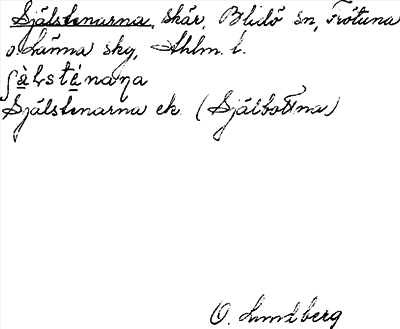 Själstenarna, skär, Blidö sn, Frötuna
o. Länna skg, Sthlm. l.
ʃàlsténaɳa
Själstenarna ek. (Själbottna)
O. Lundberg